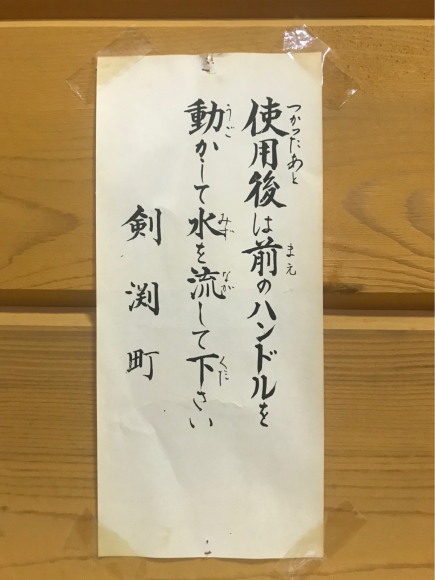 使用後は前のハンドルを
つかったあと
まえ
動かして水を流して下さい
うご
みず
なが
くだ
剣渕町